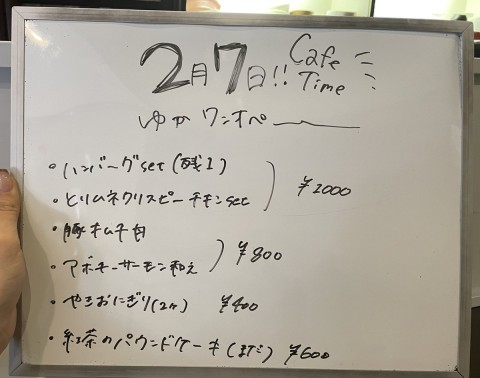 2月7日!! Cafe Time
ゆか ワンオペ
・ハンバーグset (残1)
・とりムネクリスピーチキンset
¥1000
・豚キムチ丼
・アボチーサーモン和え
¥800
・やきおにぎり(2ケ) ¥400
・紅茶のパウンドケーキ(まだ) ¥600